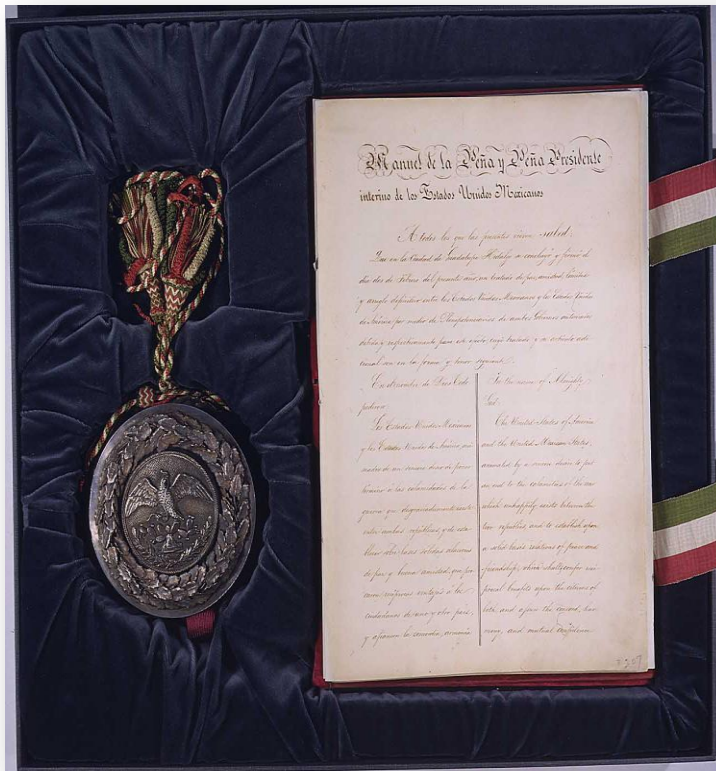 Manuel de la Peña y Peña Presidente
interino de los Estados Unidos Mexicanos
A todos los que las presentes vieren sabed:
Que en la Ciudad de Guadalupe Hidalgo se concluyó y firmó el
dia dos de Febrero del presente año, un tratado de paz, amistad, límites
y arreglo definitivo entre los Estados Unidos Mexicanos y los Estados Unidos
de América por medio de Plenipotenciarios de ambos Gobiernos autorizados
debida y respectivamente para este efecto, cuyo tratado y su artículo adi-
cional son en la forma y tenor siguiente.
En el nombre de Dios Todo
poderoso
Los Estados Unidos Mexicanos
y los Estados Unidos de América, ani-
mados de un sincero deseo de poner
término á las calamidades de la
guerra que desgraciadamente existe
entre ambas repúblicas, y de esta-
blecer sobre bases sólidas relaciones
de paz y buena amistad, que pro-
curen recíprocas ventajas á los
ciudadanos de uno y otro pais,
y afiancen la concordia, armonía
In the name of Almighty
God.
The United States of America
and the United Mexican States,
animated by a sincere desire to put
an end to the calamities of the war
which unhappily exists between the
two republics, and to establish upon
a solid basis relations of peace and
friendship, which shall confer reci-
procal benefits upon the citizens of
both, and assure the concord, har-
mony, and mutual confidence